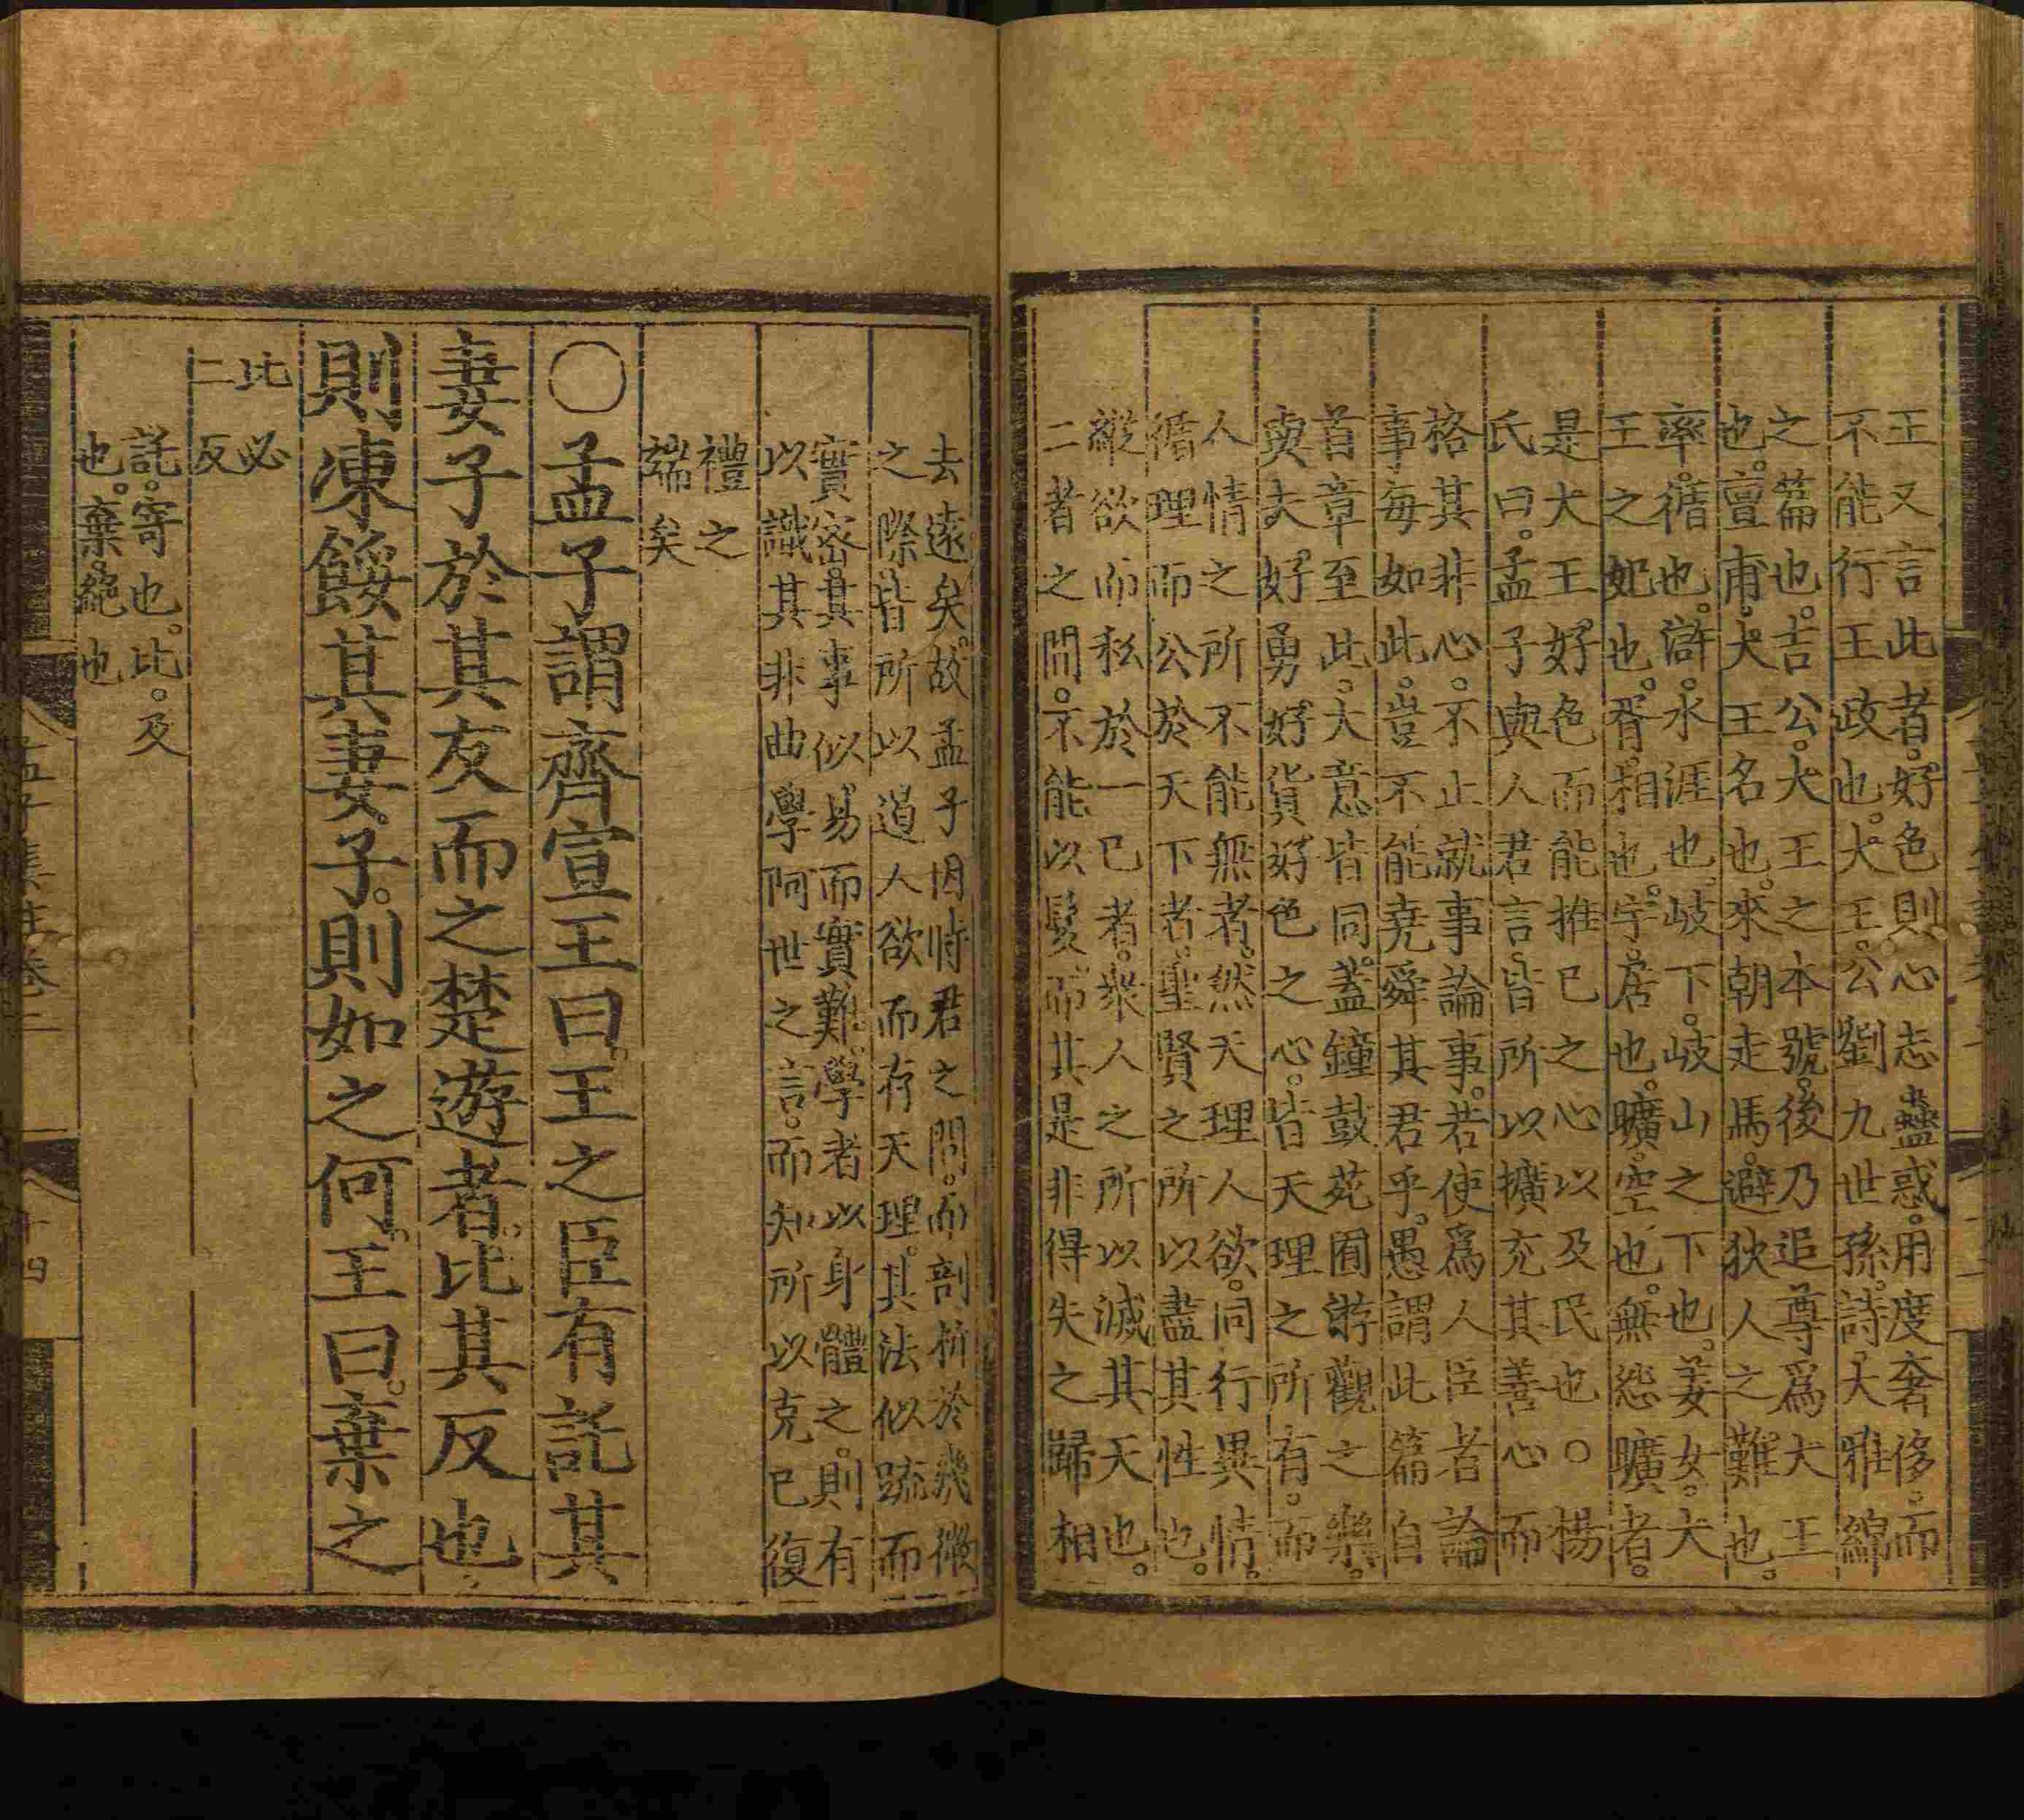 王又言此者。好色則心志蠱惑。用度奢侈。而
不能行王政也。大王。公劉九世孫。詩大雅綿
之篇也。古公。大王之本號。後乃追尊爲大王
也。亶甫。大王名也。來朝走馬。避狄人之難也。
率。循也。滸。水涯也。岐下。岐山之下也。姜女。大
王之妃也。胥。相也。宇。居也。曠。空也。無怨曠者。
是大王好色而能推己之心以及民也○楊
氏曰。孟子與人君言。皆所以擴充其善心而
格其非心。不止就事論事。若使爲人臣者論
事每如此。豈不能堯舜其君乎。愚謂此篇自
首章至此。大意皆同。蓋鐘鼓苑囿游觀之樂。
與夫好勇好貨好色之心。皆天理之所有。而
人情之所不能無者。然天理人欲。同行異情。
循理而公於天下者。聖賢之所以盡其性也。
縱欲而私於一己者。衆人之所以滅其天也。
二者之間。不能以髮。而其是非得失之歸相
去遠矣。故孟子因時君之問。而剖析於幾微
之際。皆所以遏人欲而存天理。其法似疏而
實密。其事似易而實難。學者以身體之。則有
以識其非曲學阿世之言。而知所以克己復
禮之
端矣
○孟子謂齊宣王曰。王之臣有託其
妻子於其友而之楚遊者。比其反也
則凍餒其妻子。則如之何。王曰。棄之
比必
二反
託。寄也。比。及
也。棄。絕也
孟子集註卷二
十四